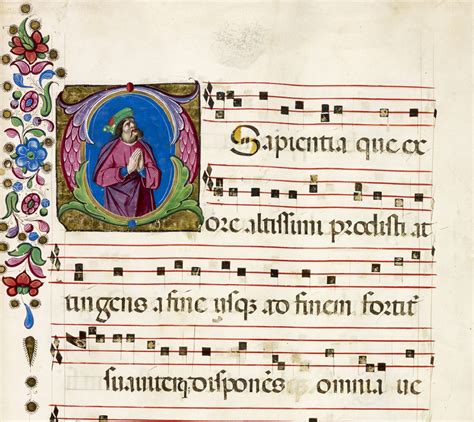 O Sapientia que ex
ore altissimi prodisti at
tingens a fine usqꝫ ad finem fortit᾽
suauiterqꝫ disponēs omnia ue